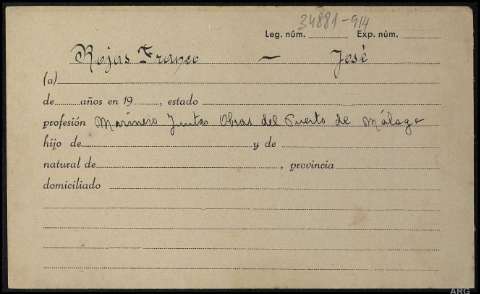 34881-914
Leg. núm. Exp. núm.
Rojas Franco — José
(a)
de años en 19 , estado
profesión Marinero Juntas Obras del Puerto de Málaga
hijo de y de
natural de , provincia
domiciliado
ARG